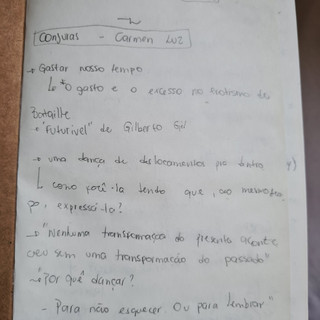 Conjuras - Carmen Luz
→ Gastar nosso tempo
↳ *O gasto e o excesso no erotismo de
Bataille
→ "Futurível" de Gilberto Gil
→ uma dança de deslocamentos pra dentro
↳ como fazê-la tendo que, ao mesmo tem
po, expressá-la?
→ "Nenhuma transformação do presente aconte
ceu sem uma transformação do passado"
→ "Por quê dançar?
- Para não esquecer ou para lembrar"